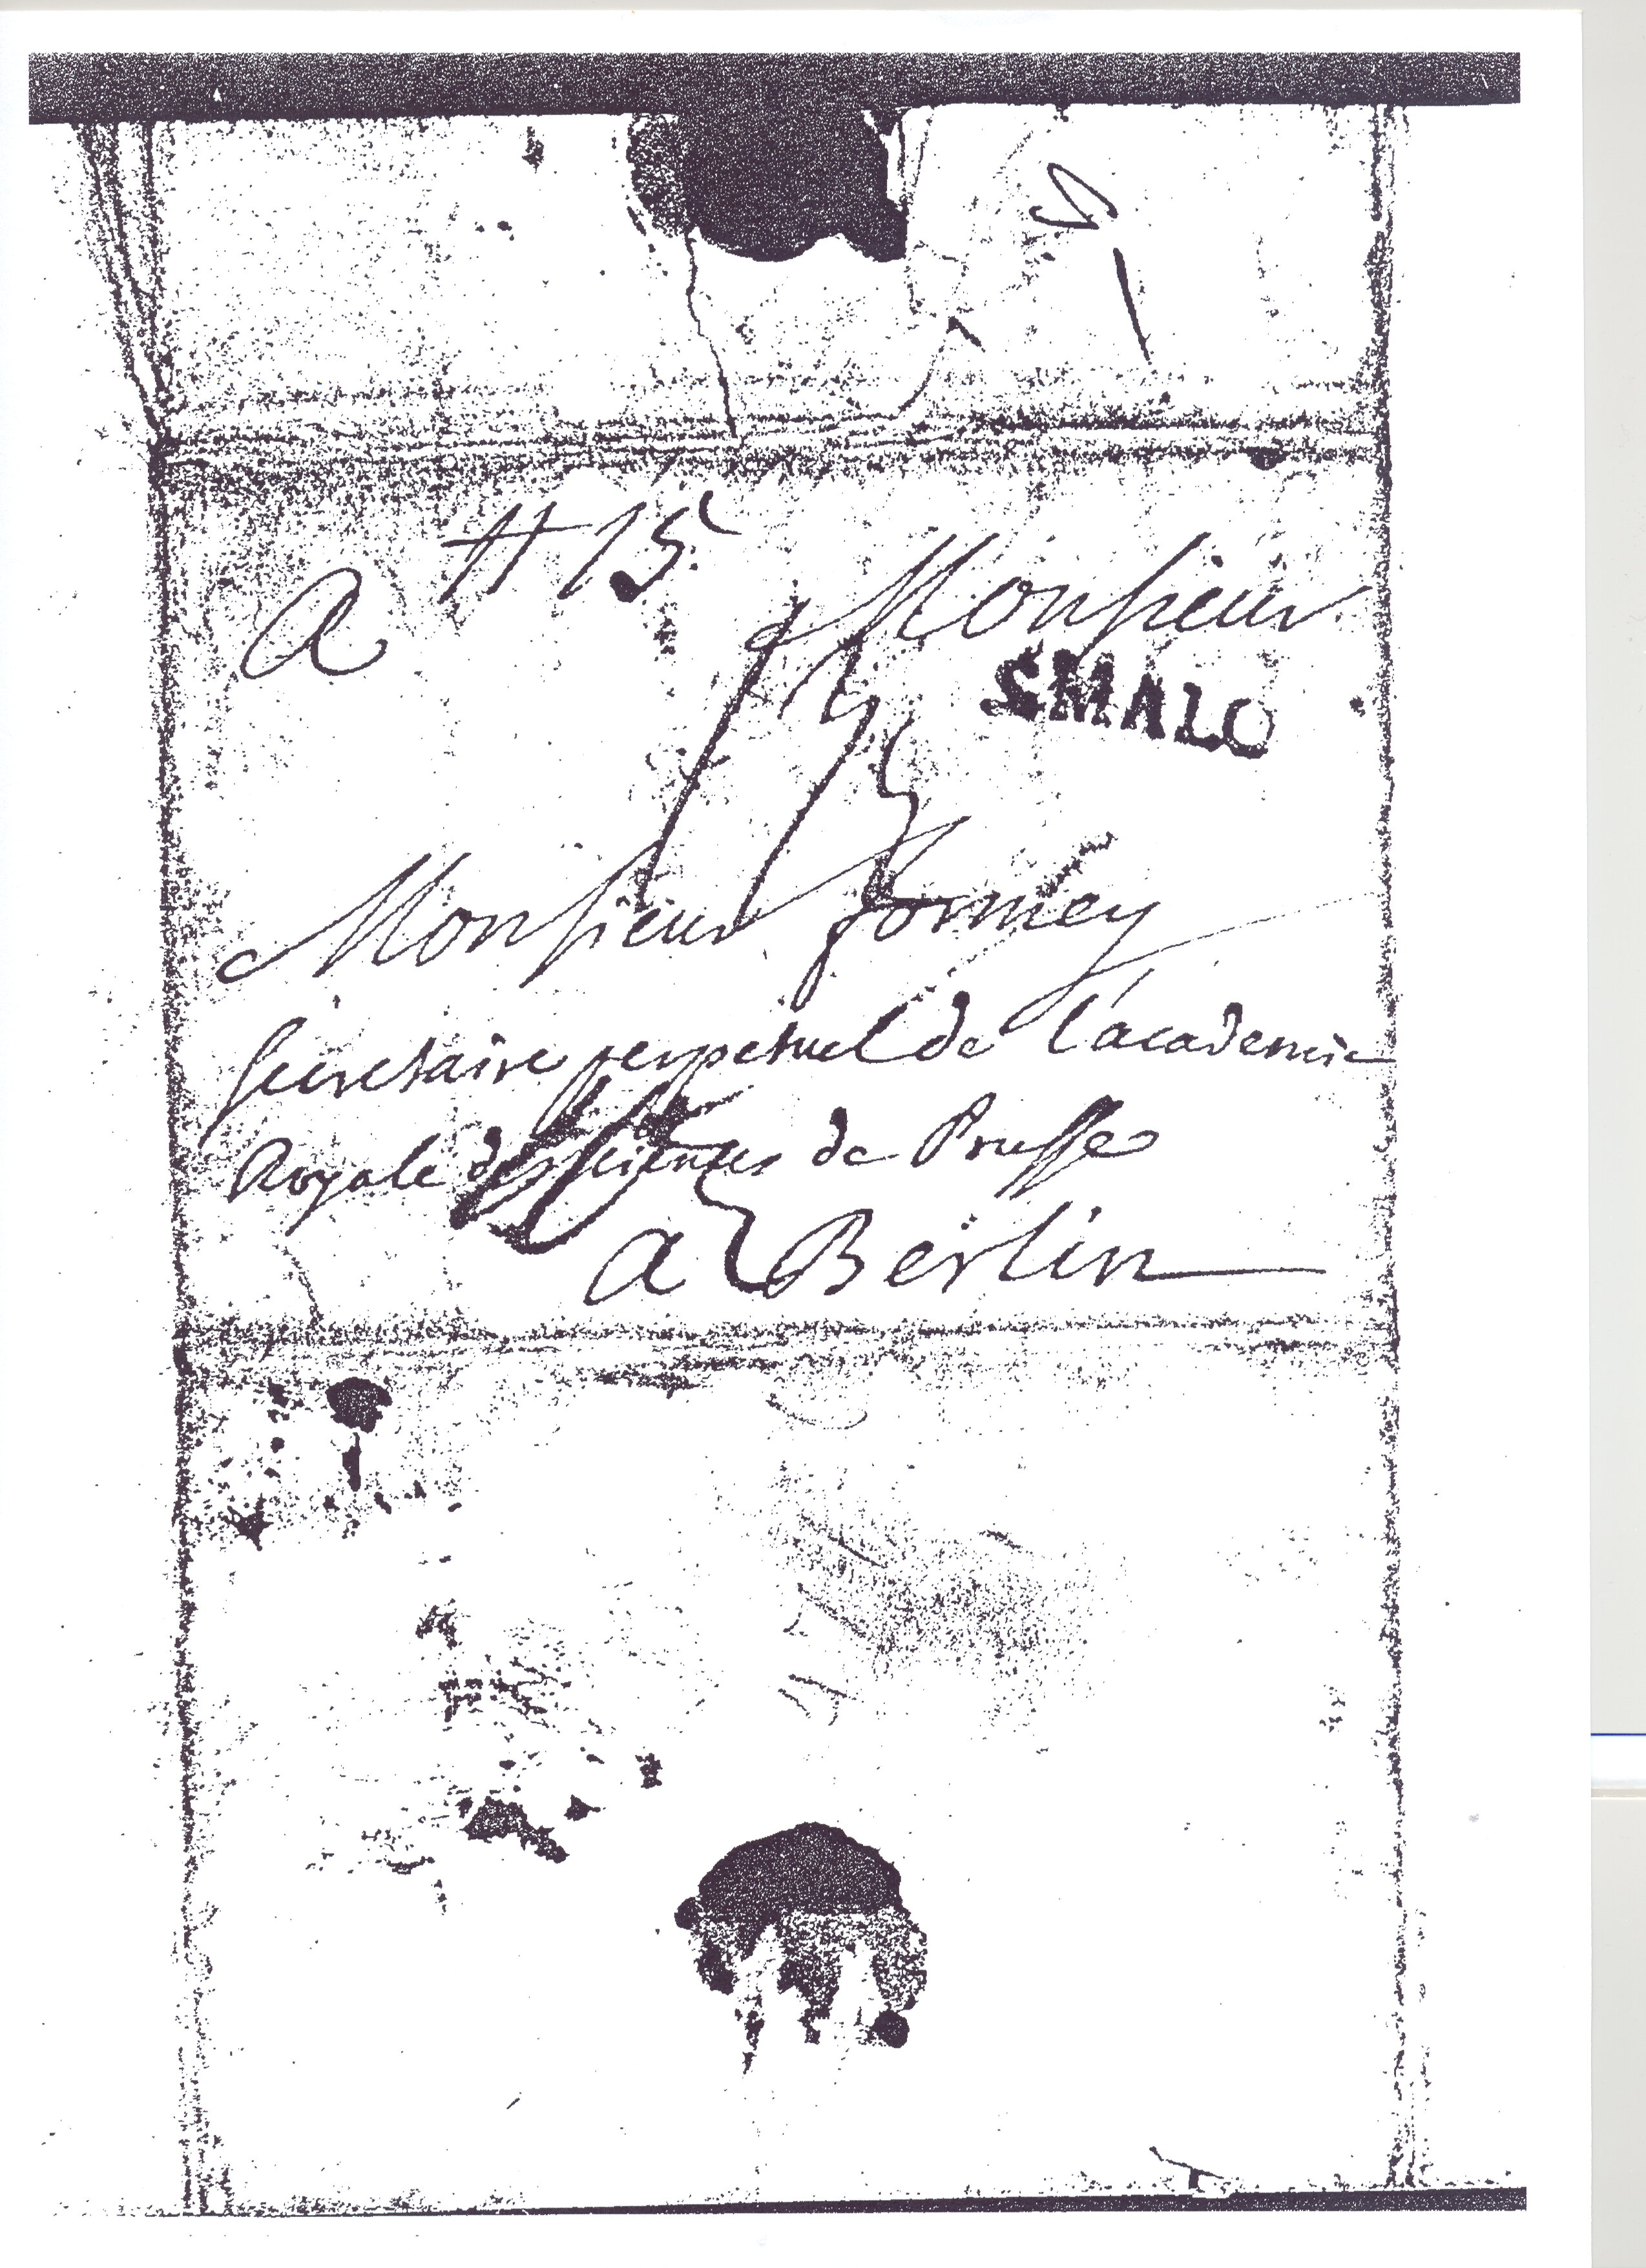 # 15
A Monsieur
SMALO
Monsieur formey
secretaire perpetuel de l'academie
Royale des sciences de Prusse
a Berlin